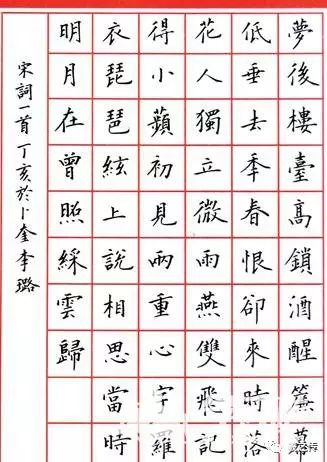 夢後樓臺高鎖酒醒簾幕
低垂去秊春恨卻來時落
花人獨立微雨燕雙飛記
得小蘋初見兩重心字羅
衣琵琶絃上說相思當時
明月在曾照綵雲歸
宋詞一首丁亥於卜奎李璐